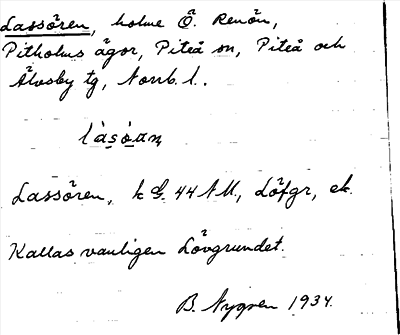 Lassören, holme Ö. Renön,
Pitholms ägor, Piteå sn, Piteå och
Älvsby tg, Norrb. l.
làsö̀an
Lassören, k G. 44 NM, Löfgr, ek.
Kallas vanligen Lövgrundet.
B. Nygren 1934.